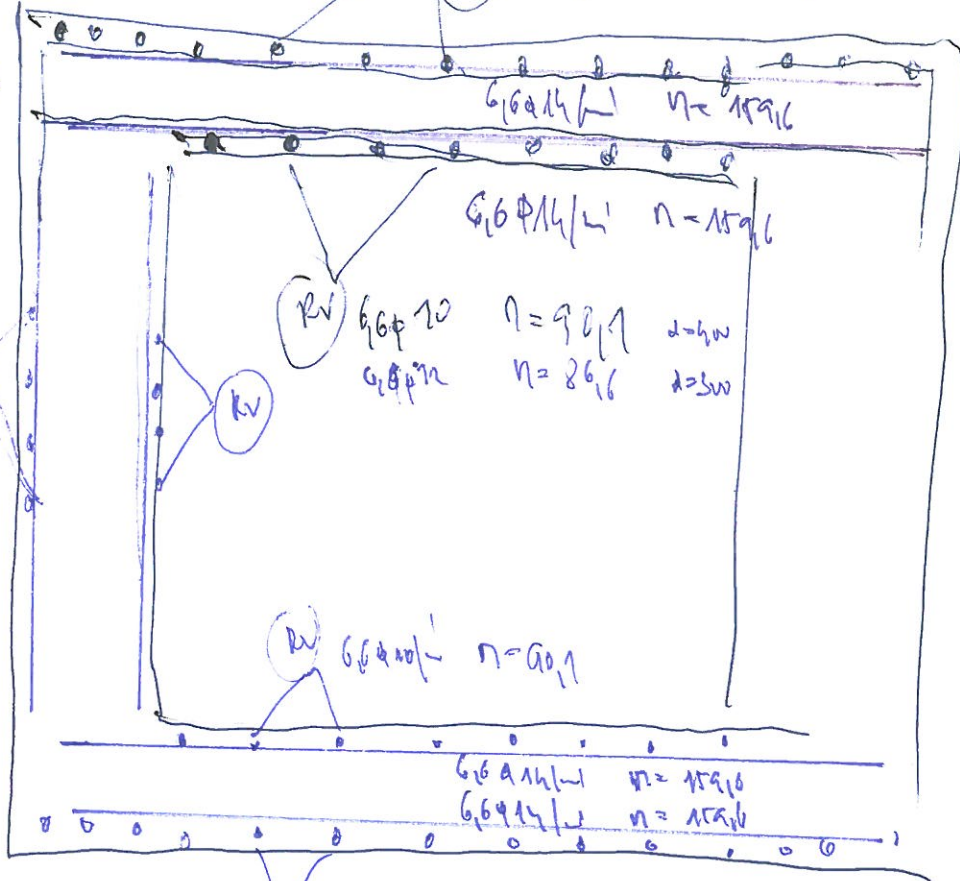 6,6 ϕ 14/m' n = 159,6
6,6 ϕ 14/m' n = 159,6
RV 6,6 ϕ 10 n = 90,1 d=400
6,6 ϕ 12 n = 86,6 d=300
RV
RV 6,6 ϕ 10/m' n = 90,1
6,6 ϕ 14/m' n = 159,6
6,6 ϕ 14/m' n = 159,6